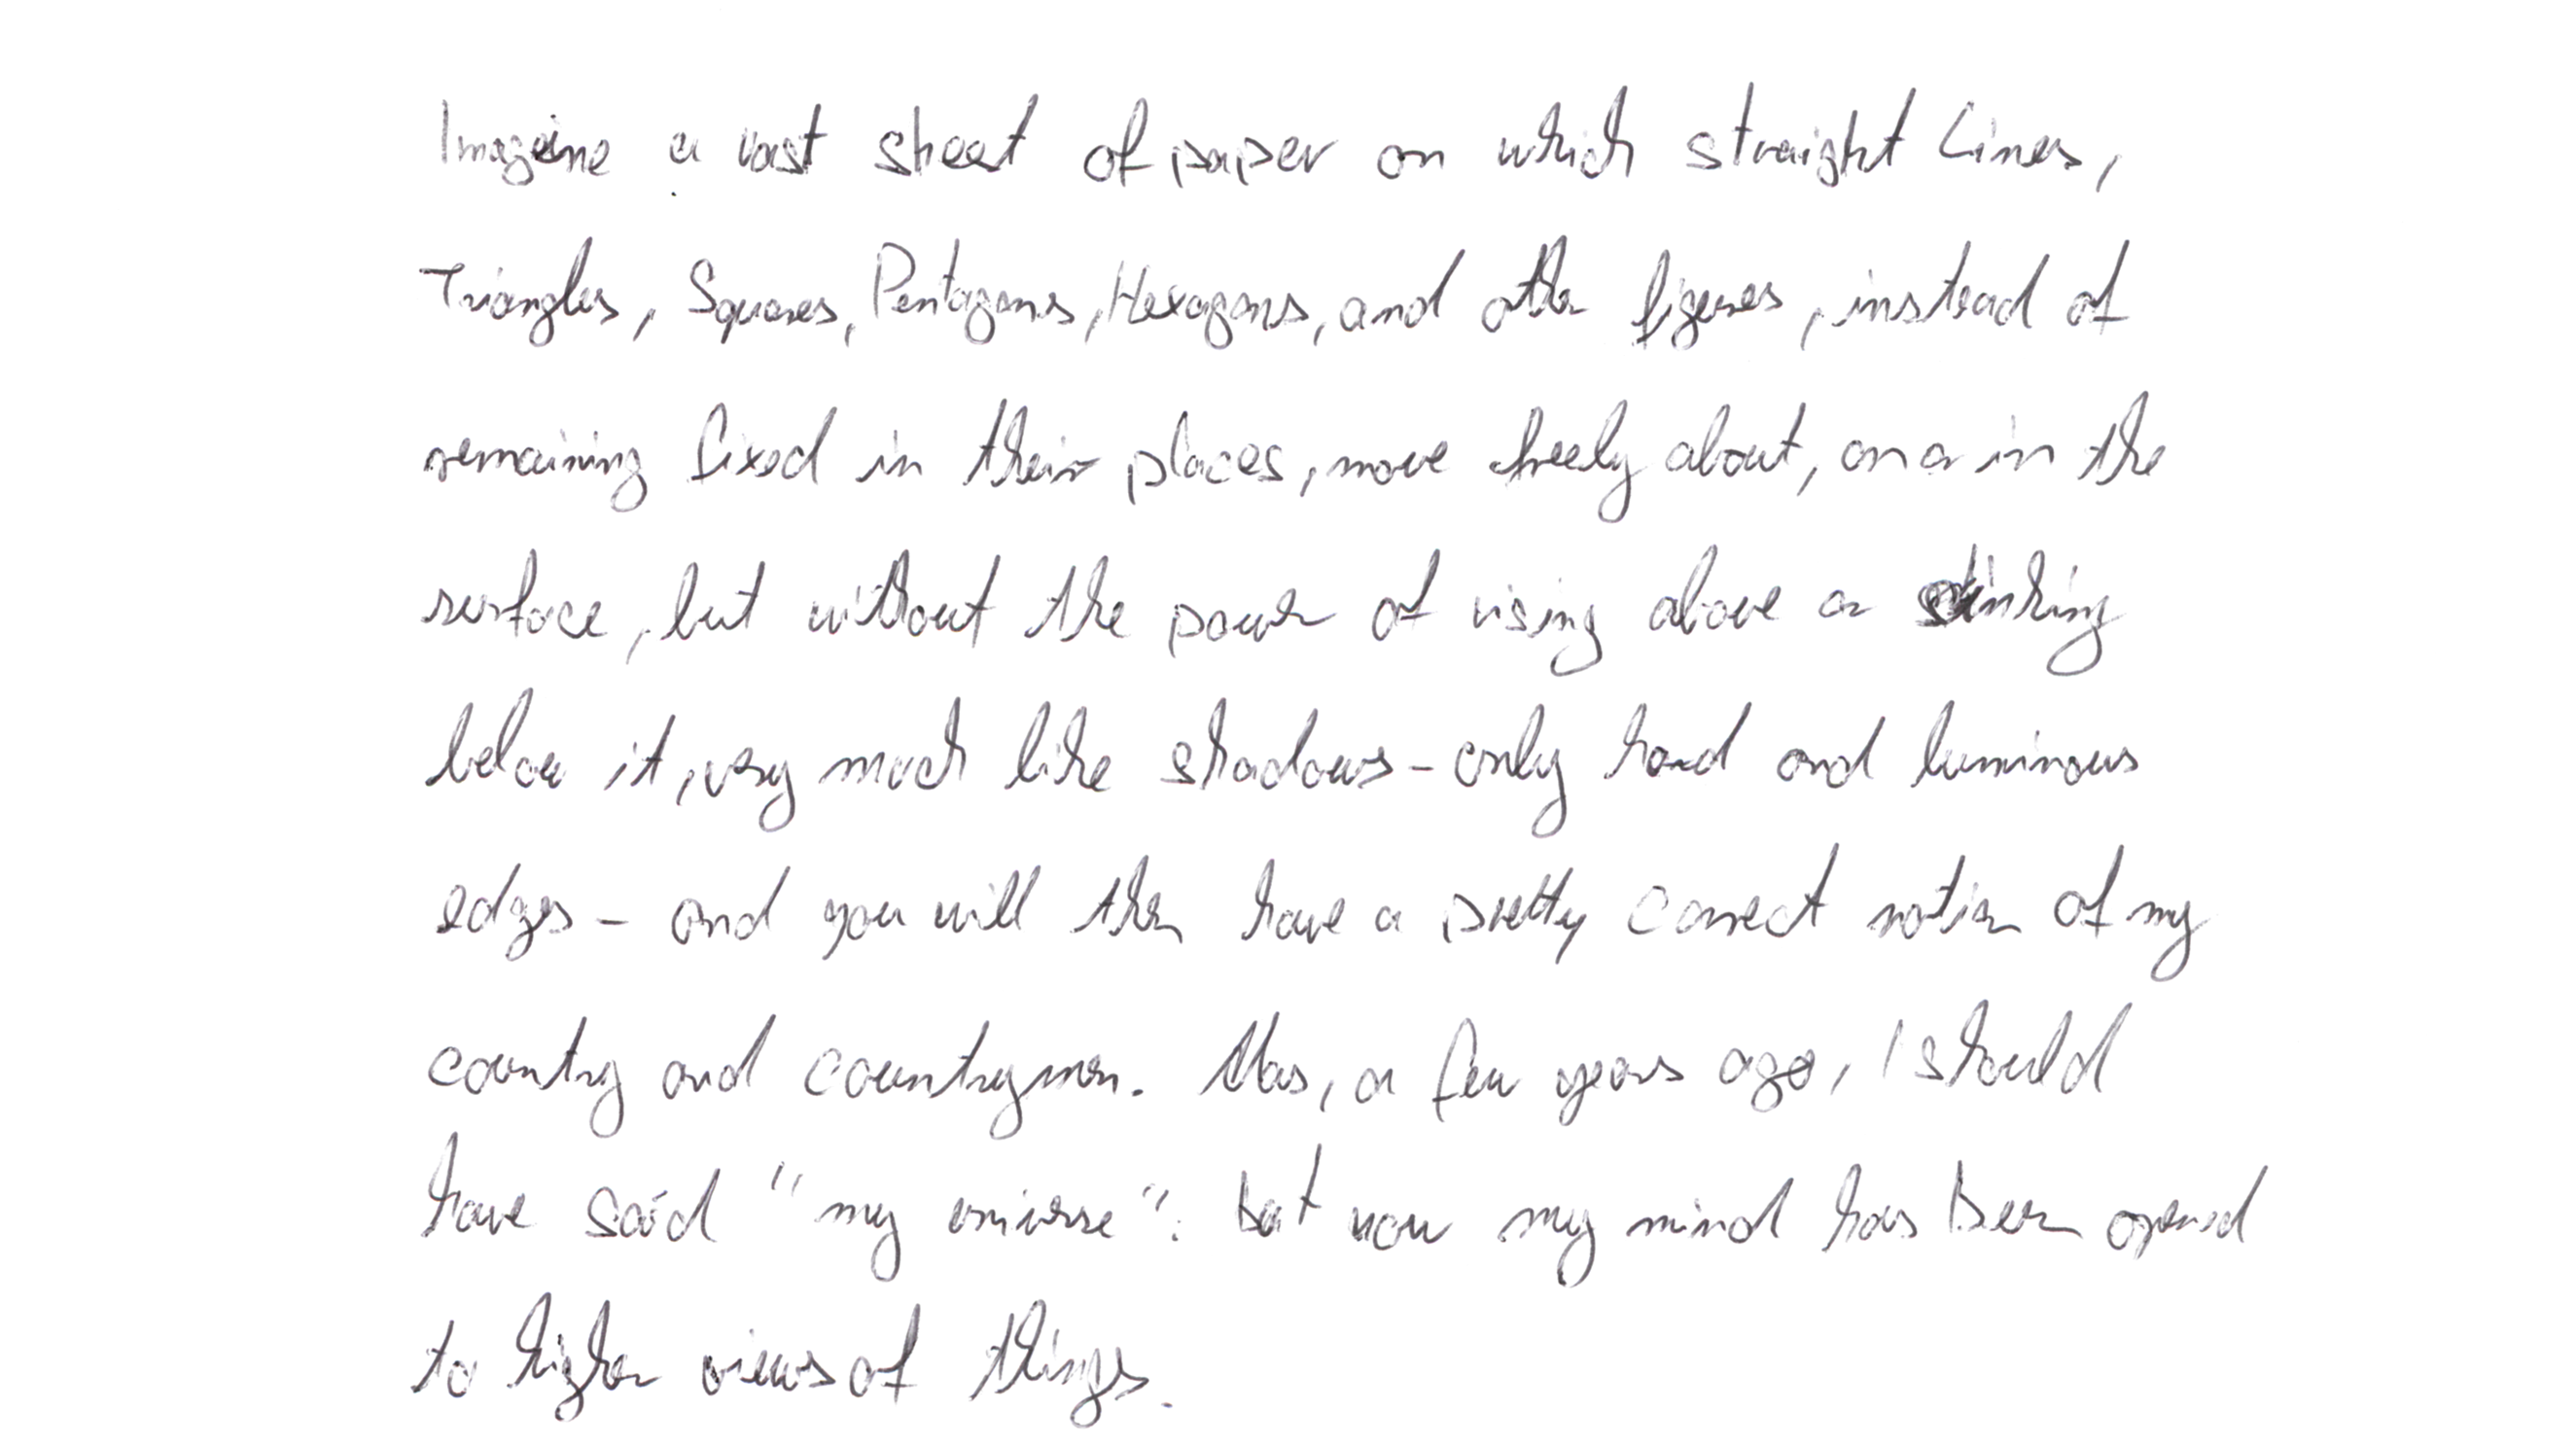 Imagine a vast sheet of paper on which straight Lines,
Triangles, Squares, Pentagons, Hexagons, and other figures, instead of
remaining fixed in their places, move freely about, on or in the
surface, but without the power of rising above or sinking
below it, very much like shadows - only hard and luminous
edges - and you will then have a pretty correct notion of my
country and countrymen. Alas, a few years ago, I should
have said "my universe": but now my mind has been opened
to higher views of things.